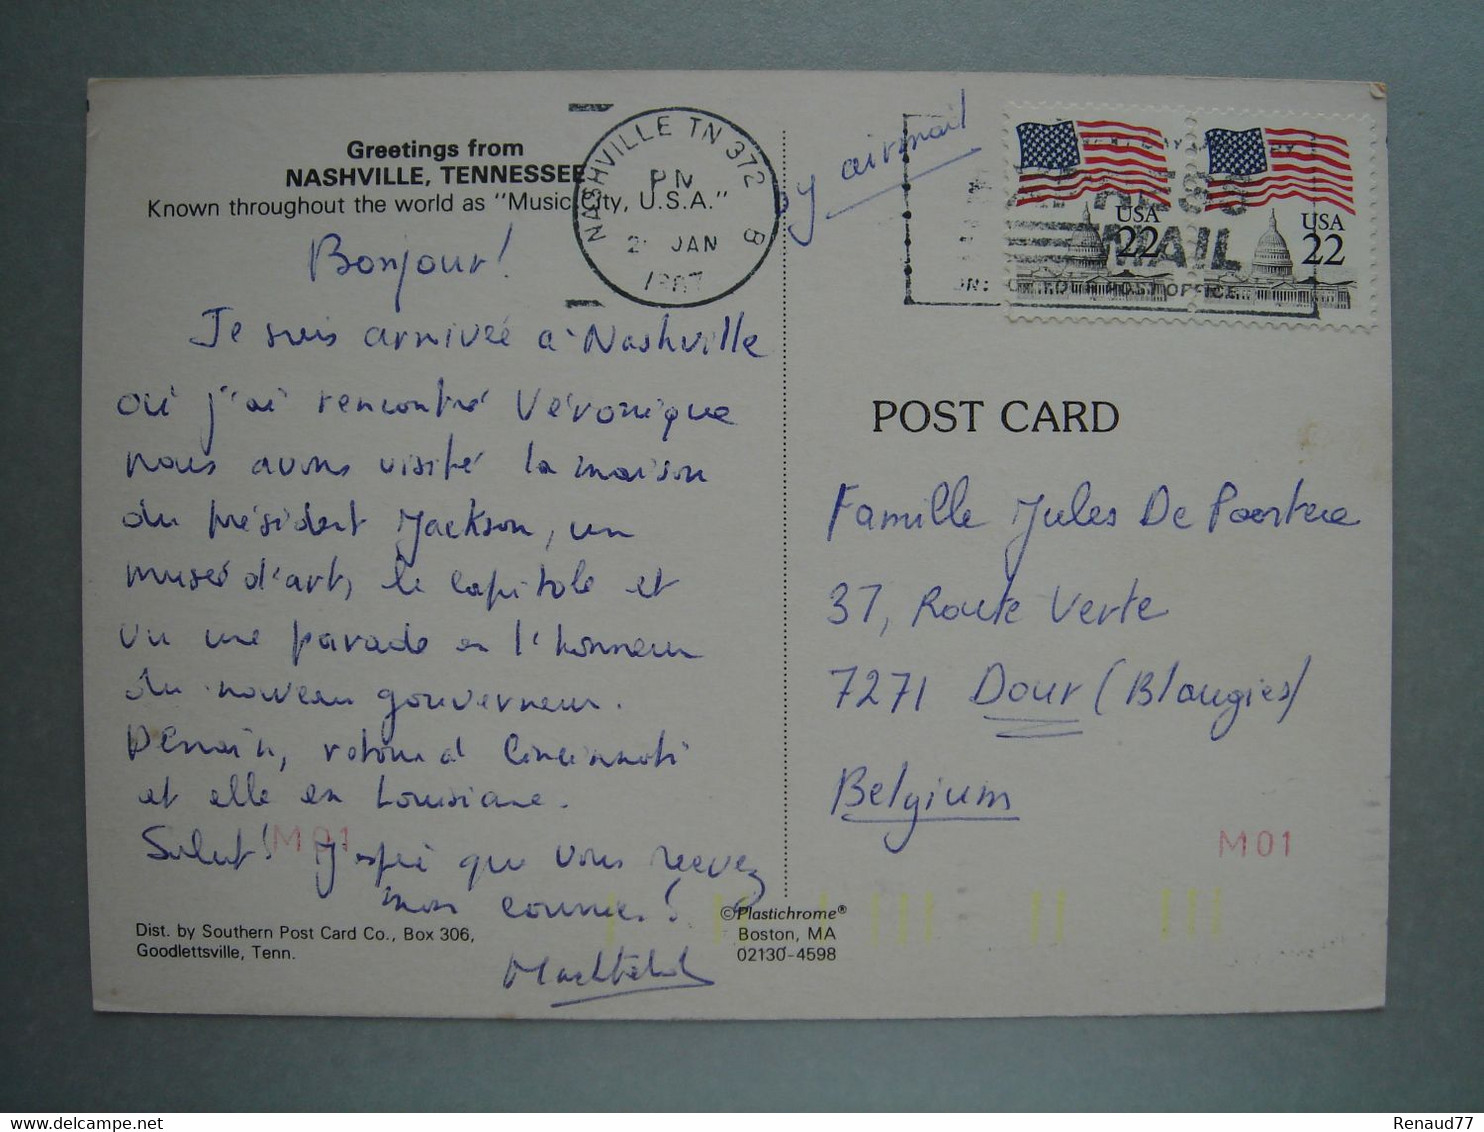 Greetings from
NASHVILLE, TENNESSEE
Known throughout the world as "Music City, U.S.A."
NASHVILLE TN 372 B
PM
JAN
1987
by airmail
MAIL
POST OFFICE
USA
22
USA
22
Bonjour!
Je suis arrivée à Nashville
où j'ai rencontré Véronique
nous avons visité la maison
du président Jackson, un
musée d'art, le capitole et
vu une parade en l'honneur
du nouveau gouverneur.
Demain, retour à Cincinnati
et elle en Louisiane.
Salut! J'espère que vous recevez
mon courrier!
M01
POST CARD
Famille Jules De Poortere
37, Route Verte
7271 Dour (Blaugies)
Belgium
M01
Dist. by Southern Post Card Co., Box 306,
Goodlettsville, Tenn.
©Plastichrome®
Boston, MA
02130-4598
Renaud77